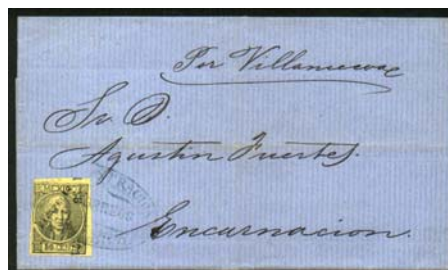 Por Villanueva
Sr. D.
Agustin Fuertes.
Encarnacion.